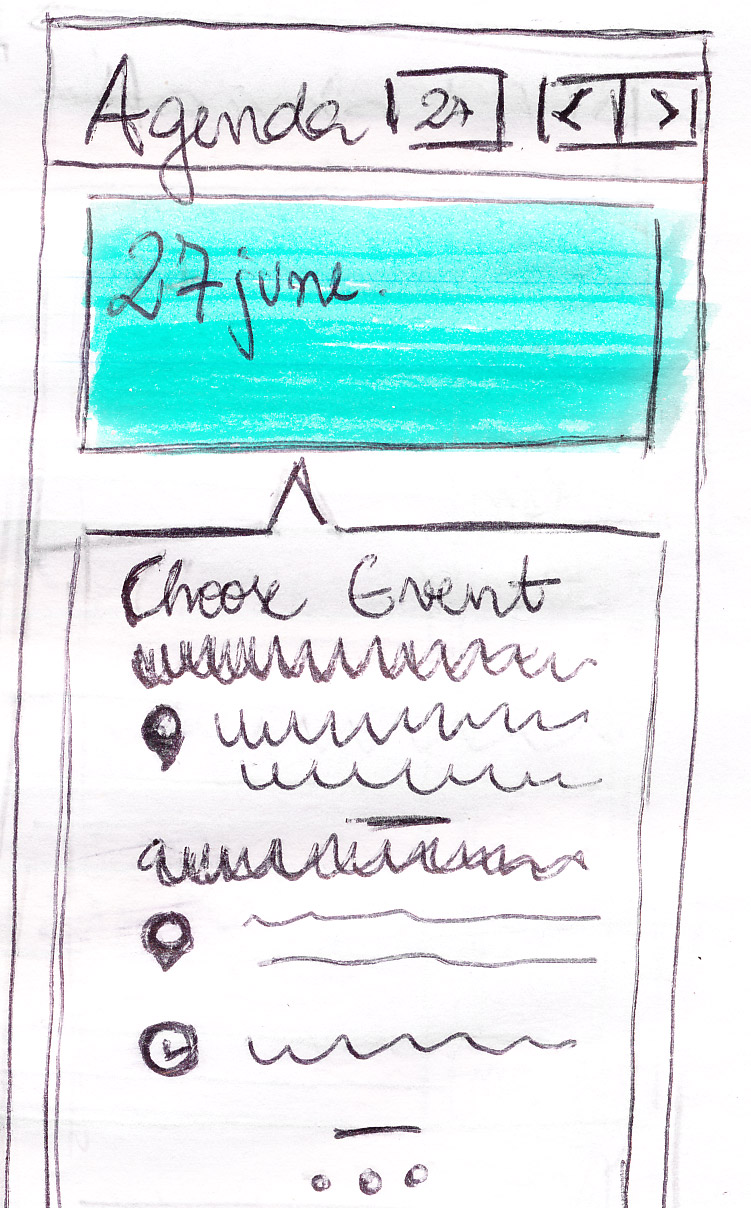 Agenda 27 < >
27 june.
Choose Event